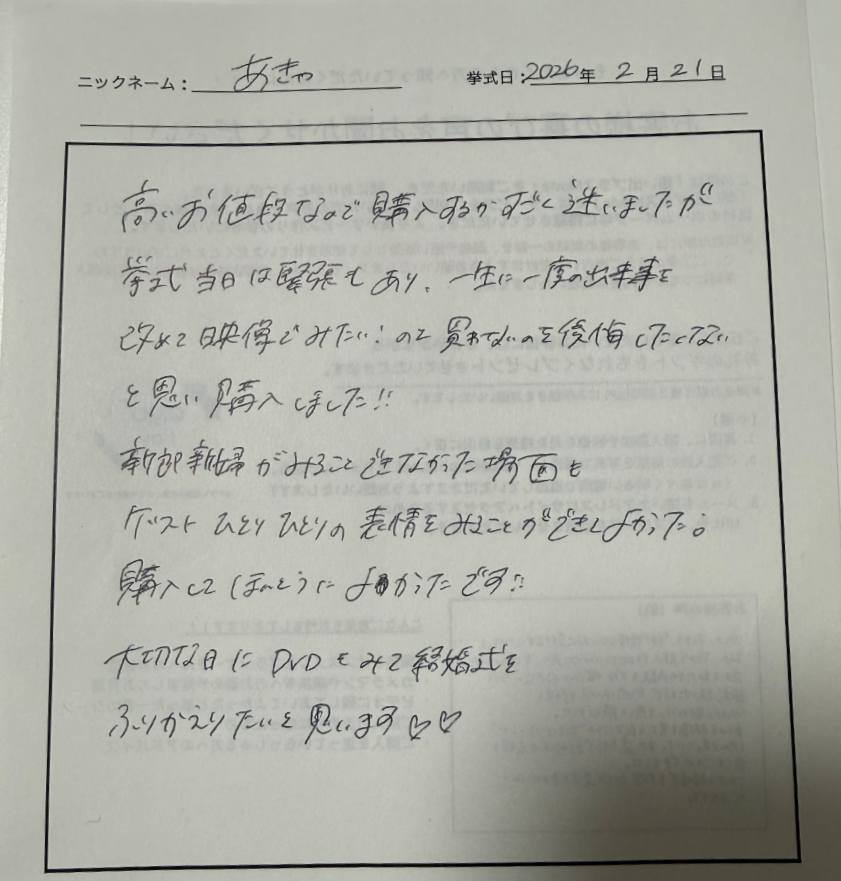 ニックネーム： あきゃ 挙式日：2026年 2月 21日
高いお値段なので購入するかすごく迷いましたが
挙式当日は緊張もあり、一生に一度の出来事を
改めて映像でみたい！ので買わないのを後悔したくない
と思い購入しました!!
新郎新婦がみることできなかった場面も
ゲストひとりひとりの表情をみることができてよかった。
購入してほんとうによかったです!!
大切な日にDVDをみて結婚式を
ふりかえりたいと思います♡♡